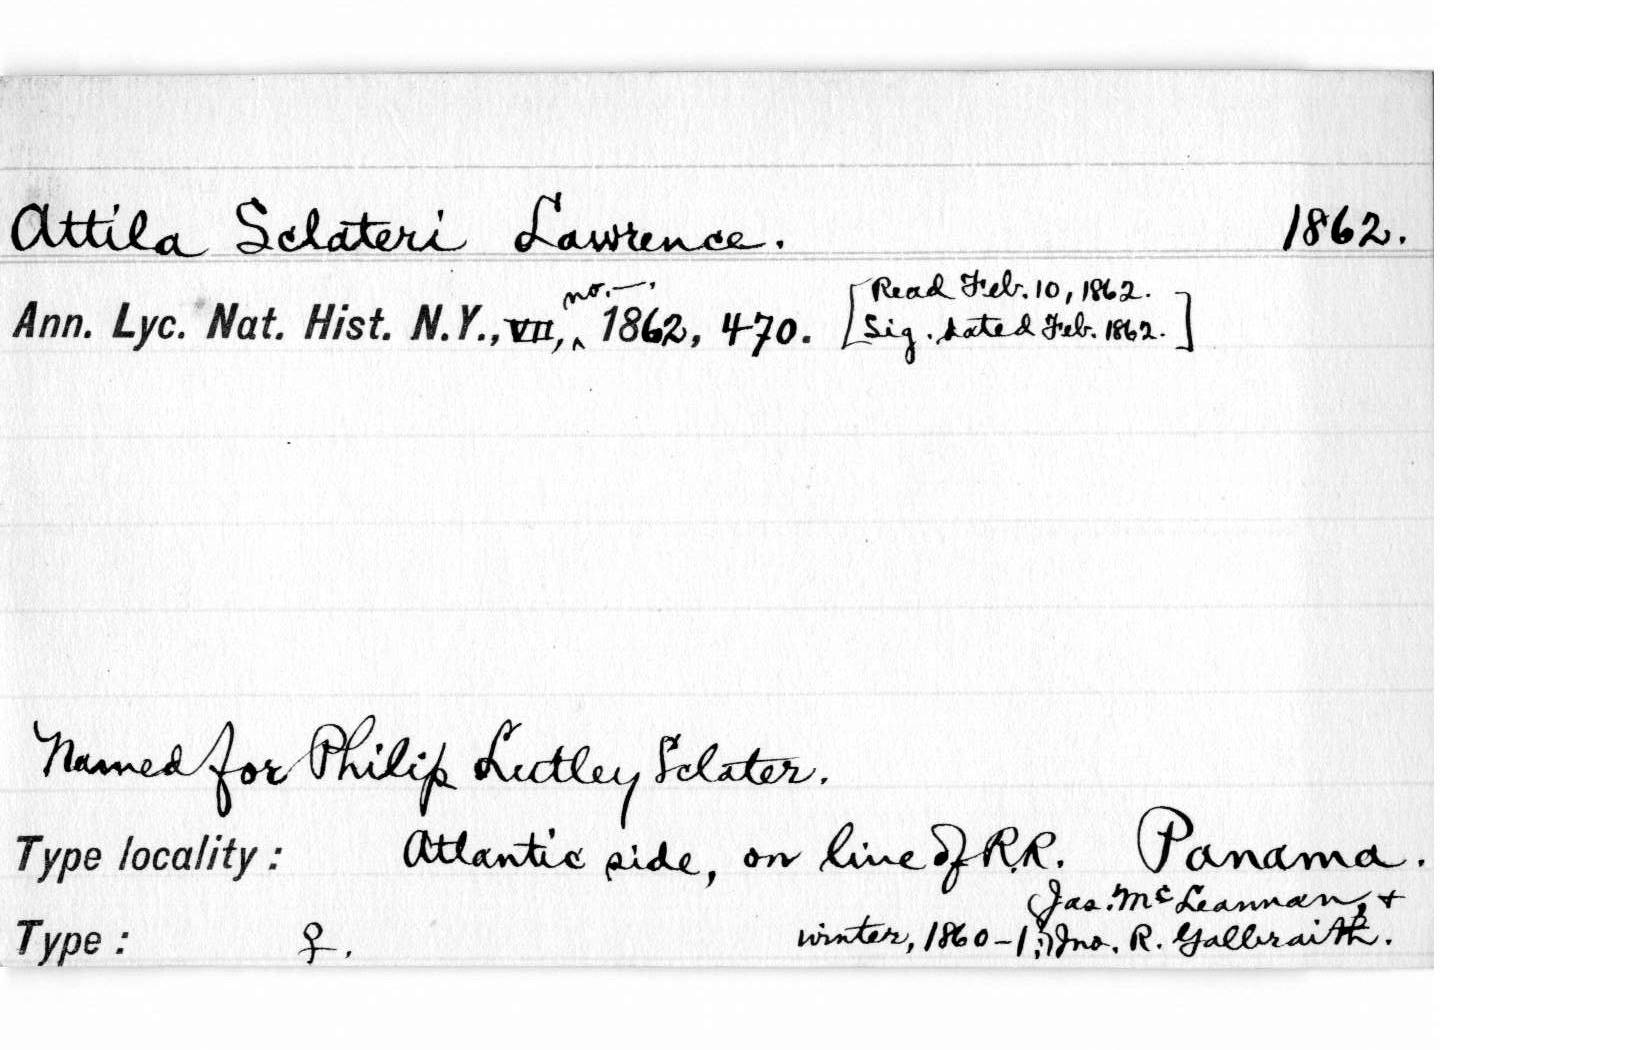 Attila Sclateri Lawrence. 1862.
Ann. Lyc. Nat. Hist. N.Y., VII, no. —, 1862, 470. [Read Feb. 10, 1862.
Sig. dated Feb. 1862.]
Named for Philip Lutley Sclater.
Type locality: Atlantic side, on line of R.R. Panama.
Jas. McLeannan, +
Type: ♀. winter, 1860-1; Jno. R. Galbraith.